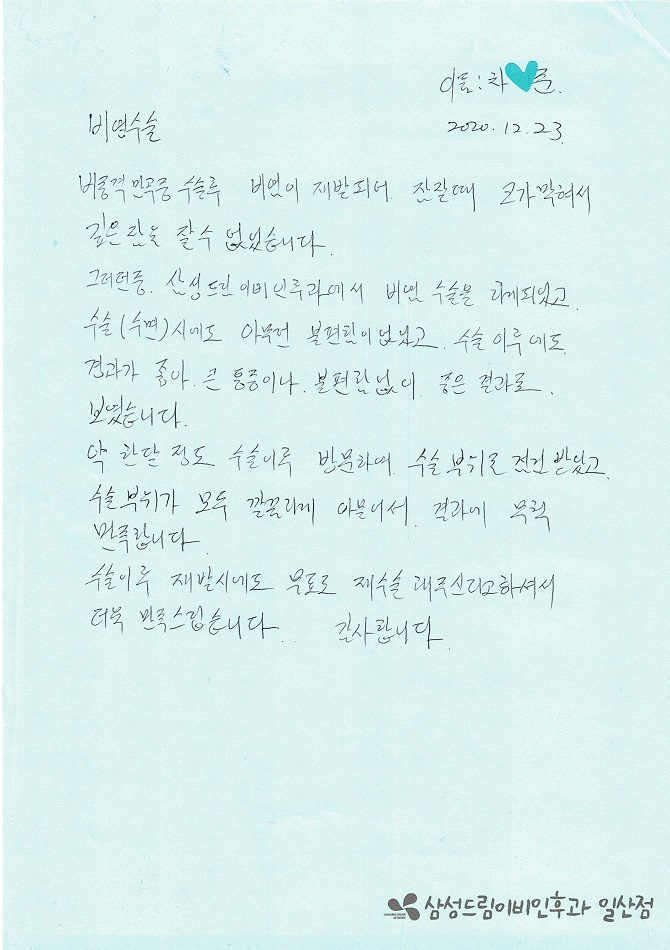 이름: 차♥준.
비염수술
2020. 12. 23.
비중격 만곡증 수술후 비염이 재발되어. 잠잘때 코가 막혀서
깊은 잠을 잘수 없었습니다.
그러던중. 삼성드림이비인후과에서 비염 수술을 하게되었고.
수술(수면)시에도 아무런 불편함이 없었고. 수술이후에도.
경과가 좋아. 큰 통증이나. 불편함없이. 좋은 결과로.
보였습니다.
약 한달 정도 수술이후 방문하여. 수술부위로 점검 받았고.
수술부위가 모두 깔끔하게 아물어서. 결과에 무척
만족합니다.
수술이후 재발시에도 무료로 재수술 해주신다고하셔서
더욱 만족스럽습니다. 감사합니다.
삼성드림이비인후과 일산점